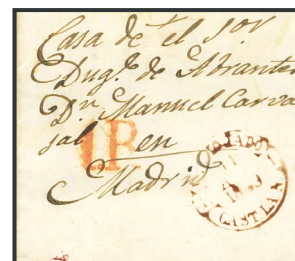 Casa de el Sor
Duqe. de Abrantes
Dn. Manuel Carva
jal en
Madrid
1R
CASTLA